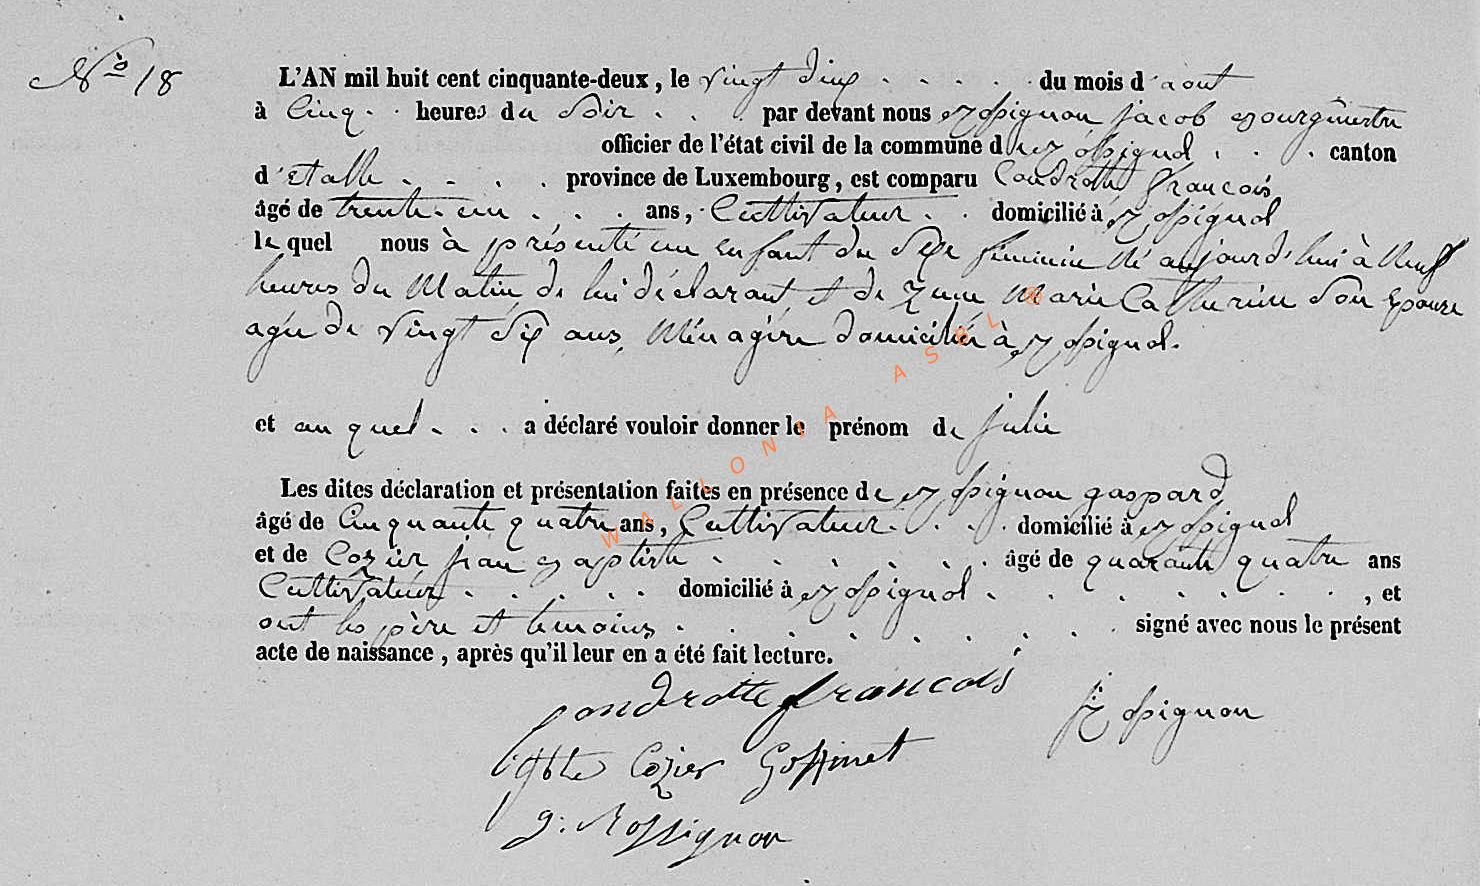 N° 18
L'AN mil huit cent cinquante-deux, le vingt deux . . . . . du mois d'aout
à Cinq . . heures du Soir . . . par devant nous Rossignon jacob Bourgmestre
officier de l'état civil de la commune de Rossignol . . . canton
d'Etalle . . . . province de Luxembourg, est comparu Condrotte francois
âgé de trente-un . . . ans, Cultivateur . . domicilié à Rossignol
lequel nous à présenté un enfant du Sexe féminin né aujourd'hui à Neuf
heures du Matin de lui déclarant et de Marie Catherine Son Epouse
agée de vingt Six ans, Ménagère domiciliée à Rossignol.
et au quel . . . a déclaré vouloir donner le prénom de julie
Les dites déclaration et présentation faites en présence de Rossignon gaspard
âgé de Cinquante quatre ans, Cultivateur . . . . domicilié à Rossignol
et de Cozier jean Baptiste . . . . . . . âgé de quarante quatre ans
Cultivateur . . . . . domicilié à Rossignol . . . . . . . , et
ont les père et temoins . . . . . . . . signé avec nous le présent
acte de naissance, après qu'il leur en a été fait lecture.
Condrotte francois
j. Rossignon
Cozier Gossinet
g. Rossignon
WALLONIA ASBL ©